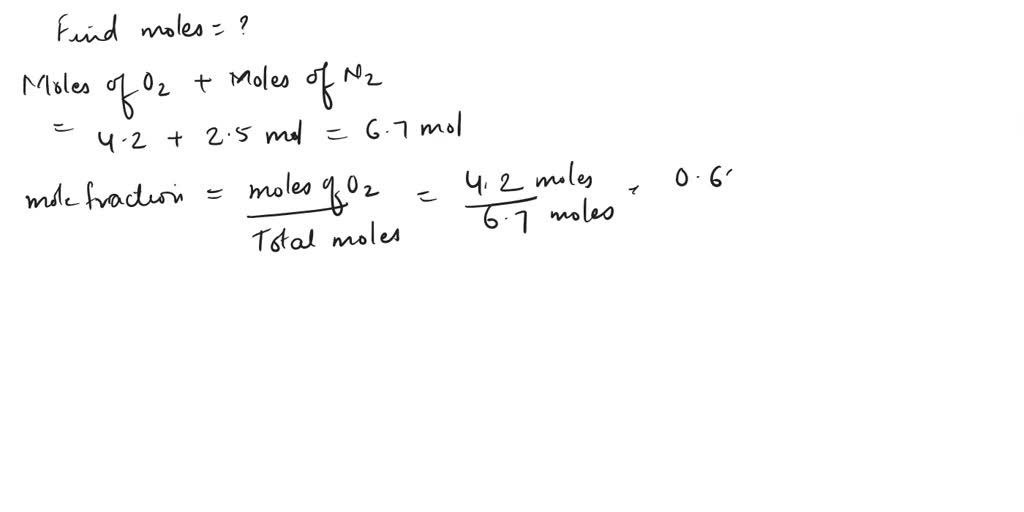 Find moles = ?
Moles of O2 + Moles of N2
= 4.2 + 2.5 mol = 6.7 mol
mole fraction = moles of O2 / Total moles = 4.2 moles / 6.7 moles = 0.6